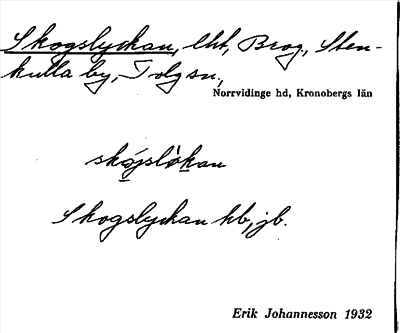 Skogslyckan, lht, Brog, Sten-
kulla by, Tolg sn,
Norrvidinge hd, Kronobergs län
skójslòkan
Skogslyckan hb, jb.
Erik Johannesson 1932